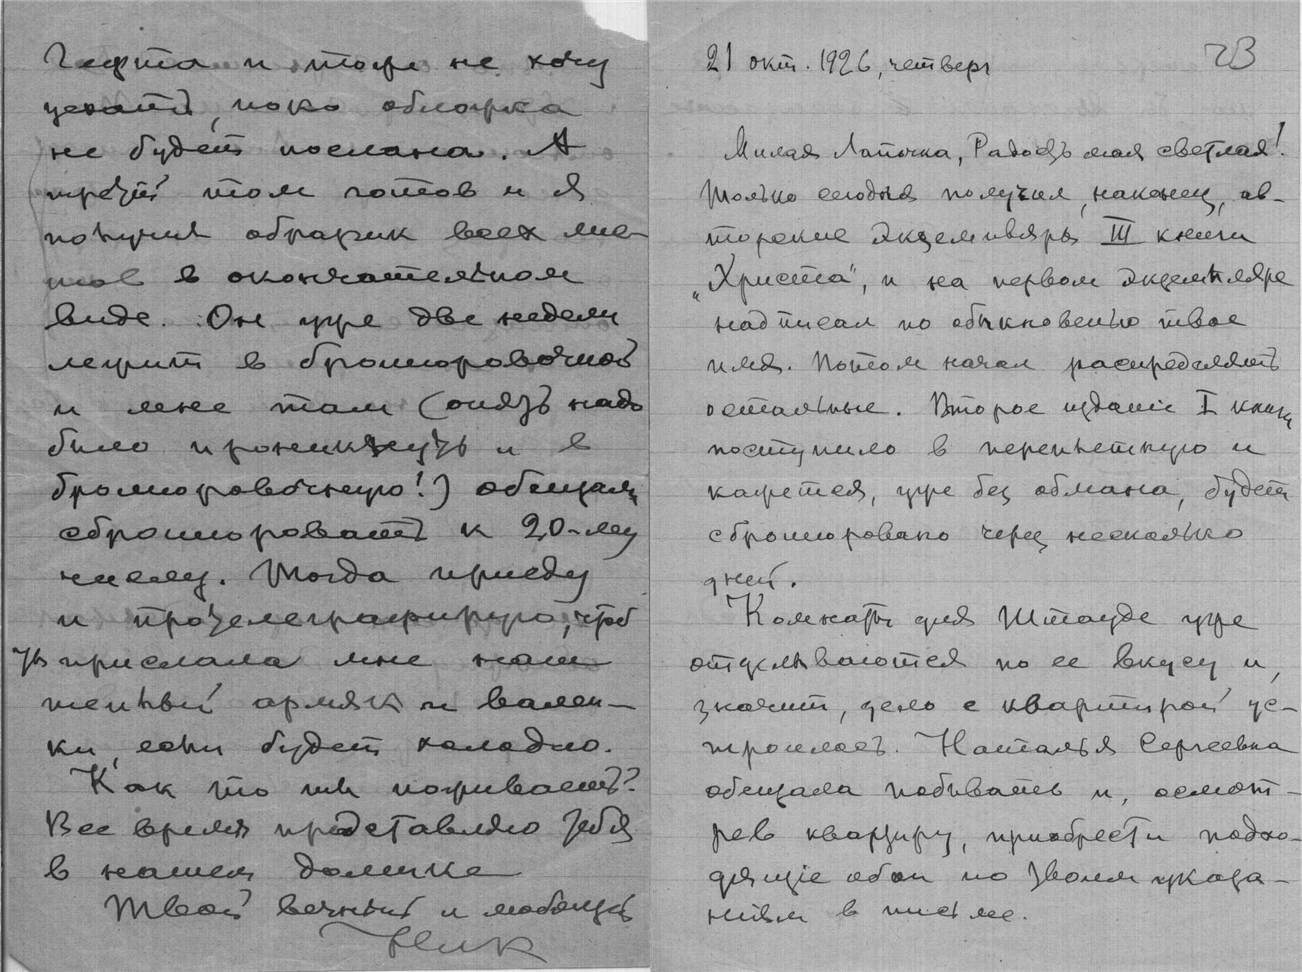 Гефта и тоже не хочу
уехать, пока обложка
не будет послана. А
третий том готов и я
получил образчик всех лис-
тов в окончательном
виде. Он уже две недели
лежит в брошюровочной
и мне там (опять надо
было проникнуть и в
брошюровочную!) обещали
сброшюровать к 20-му
числу. Тогда приеду
и протелеграфирую, чтоб
ты прислала мне наш
теплый армяк и вален-
ки, если будет холодно.
Как то ты поживаешь?
Все время представляю тебя
в нашем домике
Твой вечный и любящий
Ник
21 окт. 1926, четверг
23
Милая Лапочка, Радость моя светлая!
Только сегодня получил, наконец, ав-
торские экземпляры III книги
„Христа", и на первом экземпляре
надписал по обыкновенью твое
имя. Потом начал распределять
остальные. Второе изданiе I книги
поступило в переплетную и
кажется, уже без обмана, будет
сброшюровано через несколько
дней.
Комнаты для Штауде уже
отделываются по ее вкусу и,
значит, дело с квартирой ус-
троилось. Наталья Сергеевна
обещала побывать и, осмот-
рев квартиру, приобрести подхо-
дящiе обои по твоим указа-
ниям в письме.